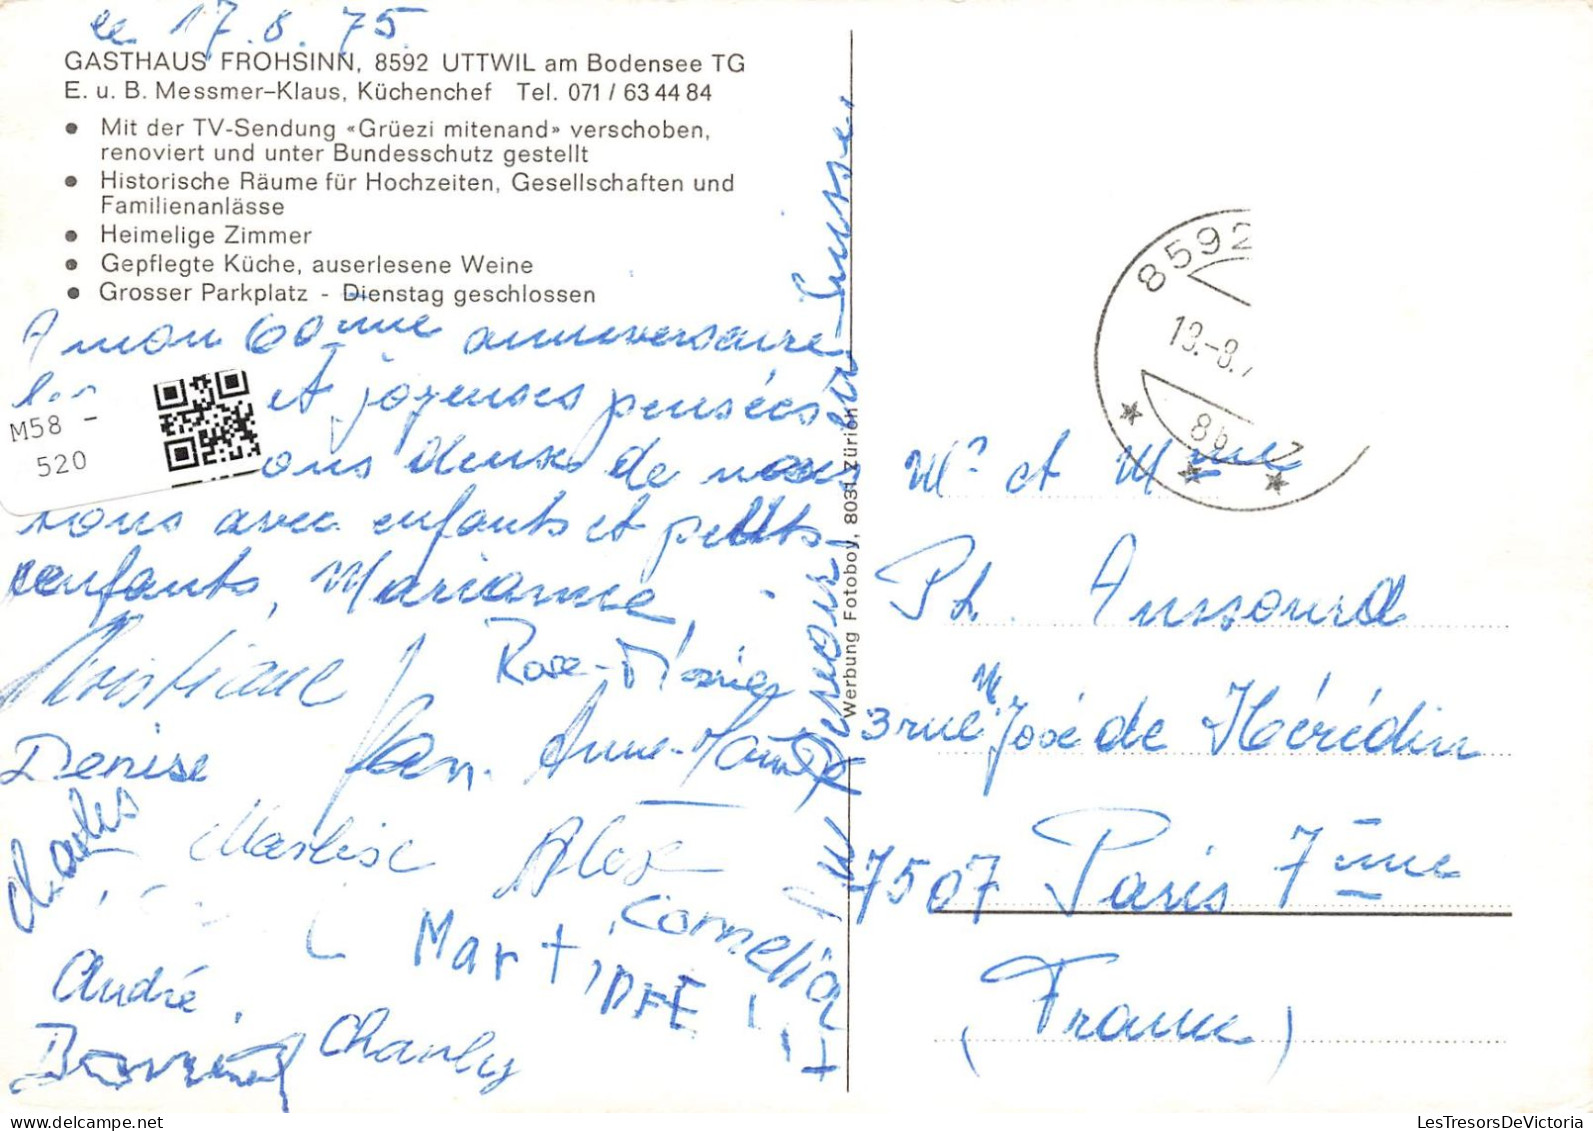 le 17.8.75
GASTHAUS FROHSINN, 8592 UTTWIL am Bodensee TG
E. u. B. Messmer-Klaus, Küchenchef Tel. 071 / 63 44 84
• Mit der TV-Sendung «Grüezi mitenand» verschoben,
renoviert und unter Bundesschutz gestellt
• Historische Räume für Hochzeiten, Gesellschaften und
Familienanlässe
• Heimelige Zimmer
• Gepflegte Küche, auserlesene Weine
• Grosser Parkplatz - Dienstag geschlossen
A mon 60ème anniversaire
et joyeuses pensées
de
avec enfants et petits
enfants, Marianne,
Christiane Rose-Marie
Denise Jean. Anne-Marie
Charles
Marlise Alex
Cornelia
Martine
André,
Charly
M58 -
520
Werbung Fotoboy, 8031 Zürich
8592
13.-8.7
8b
Mr et Mme
Ph. Aussourd
3 rue José de Hérédia
7507 Paris 7ème
(France)
LesTresorsDeVictoria
www.delcampe.net